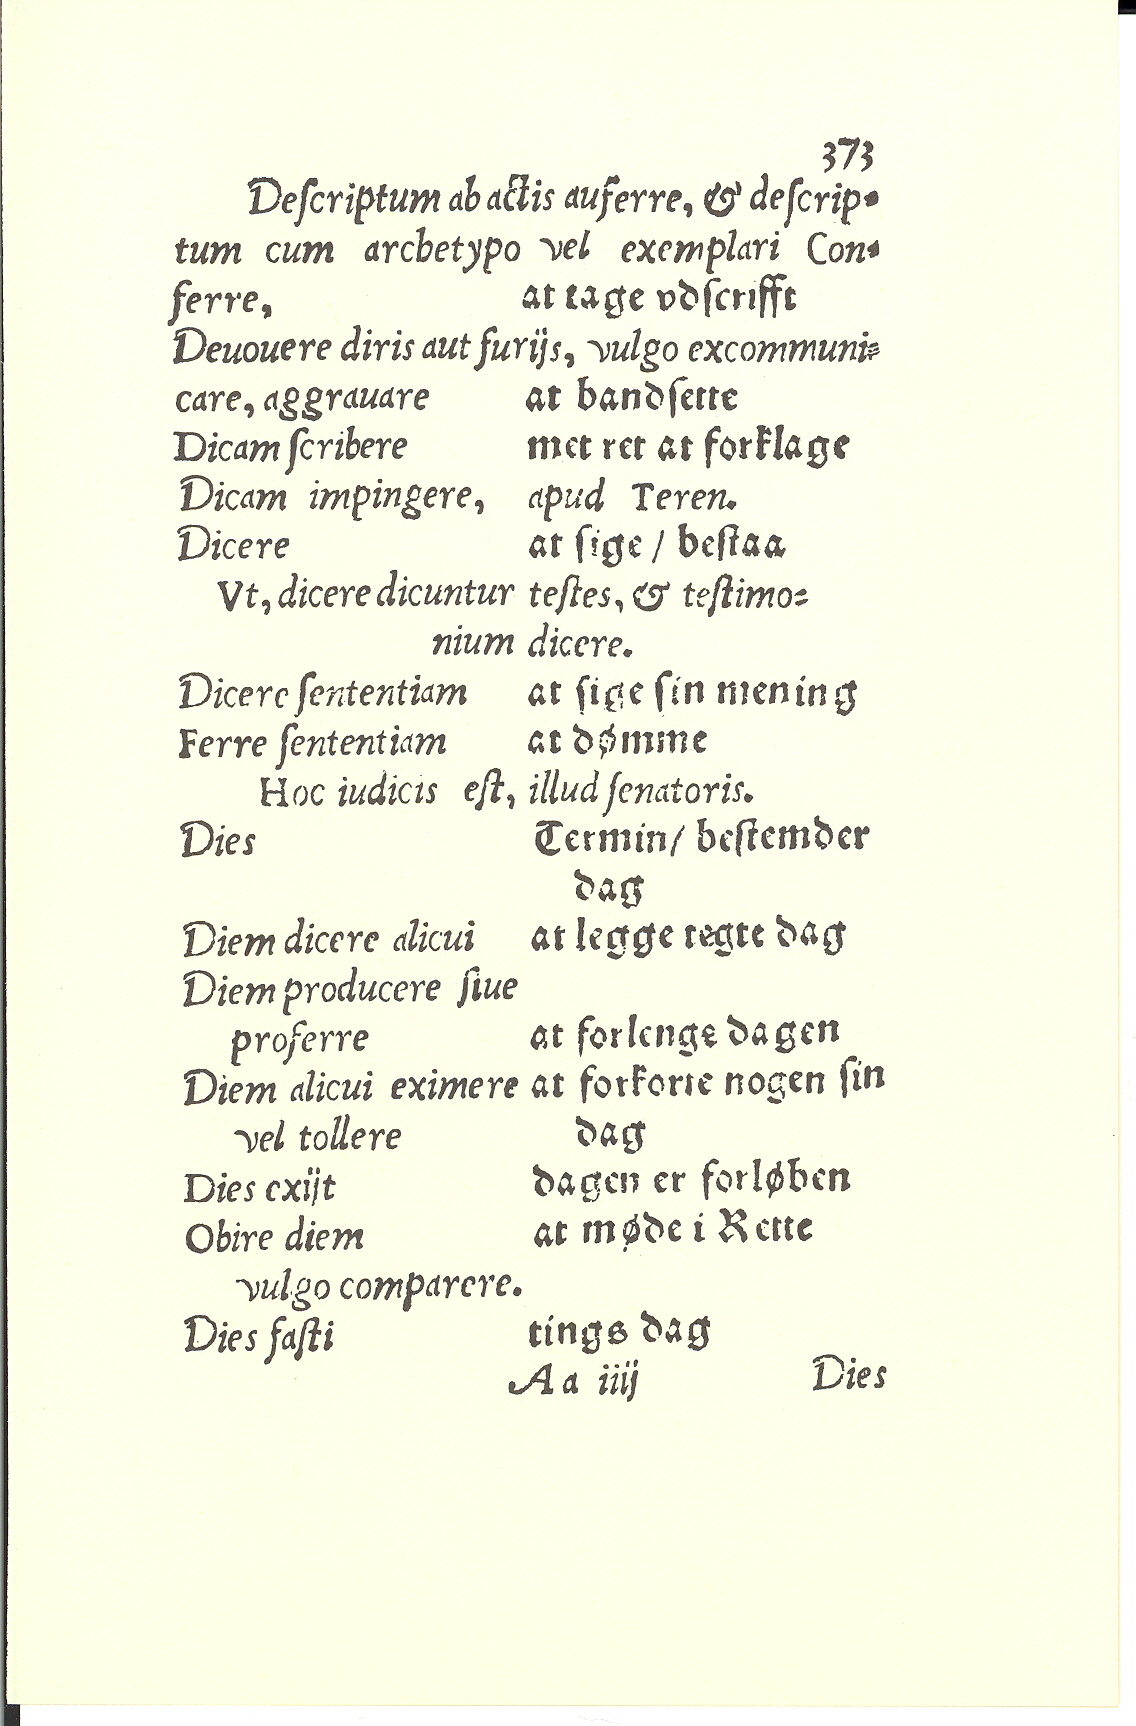 373
Deſcriptum ab actis auferre, & deſcrip-
tum cum archetypo vel exemplari Con-
ferre, at tage vdſcrifft
Deuouere diris aut furijs, vulgo excommuni-
care, aggrauare at bandſette
Dicam ſcribere met ret at forklage
Dicam impingere, apud Teren.
Dicere at ſige / beſtaa
Vt, dicere dicuntur teſtes, & teſtimo-
nium dicere.
Dicere ſententiam at ſige ſin mening
Ferre ſententiam at dømme
Hoc iudicis eſt, illud ſenatoris.
Dies Termin / beſtemder
dag
Diem dicere alicui at legge tegte dag
Diem producere ſiue
proferre at forlenge dagen
Diem alicui eximere at forkorte nogen ſin
vel tollere dag
Dies exijt dagen er forløben
Obire diem at møde i Rette
vulgo comparere.
Dies faſti tings dag
Aa iiij Dies